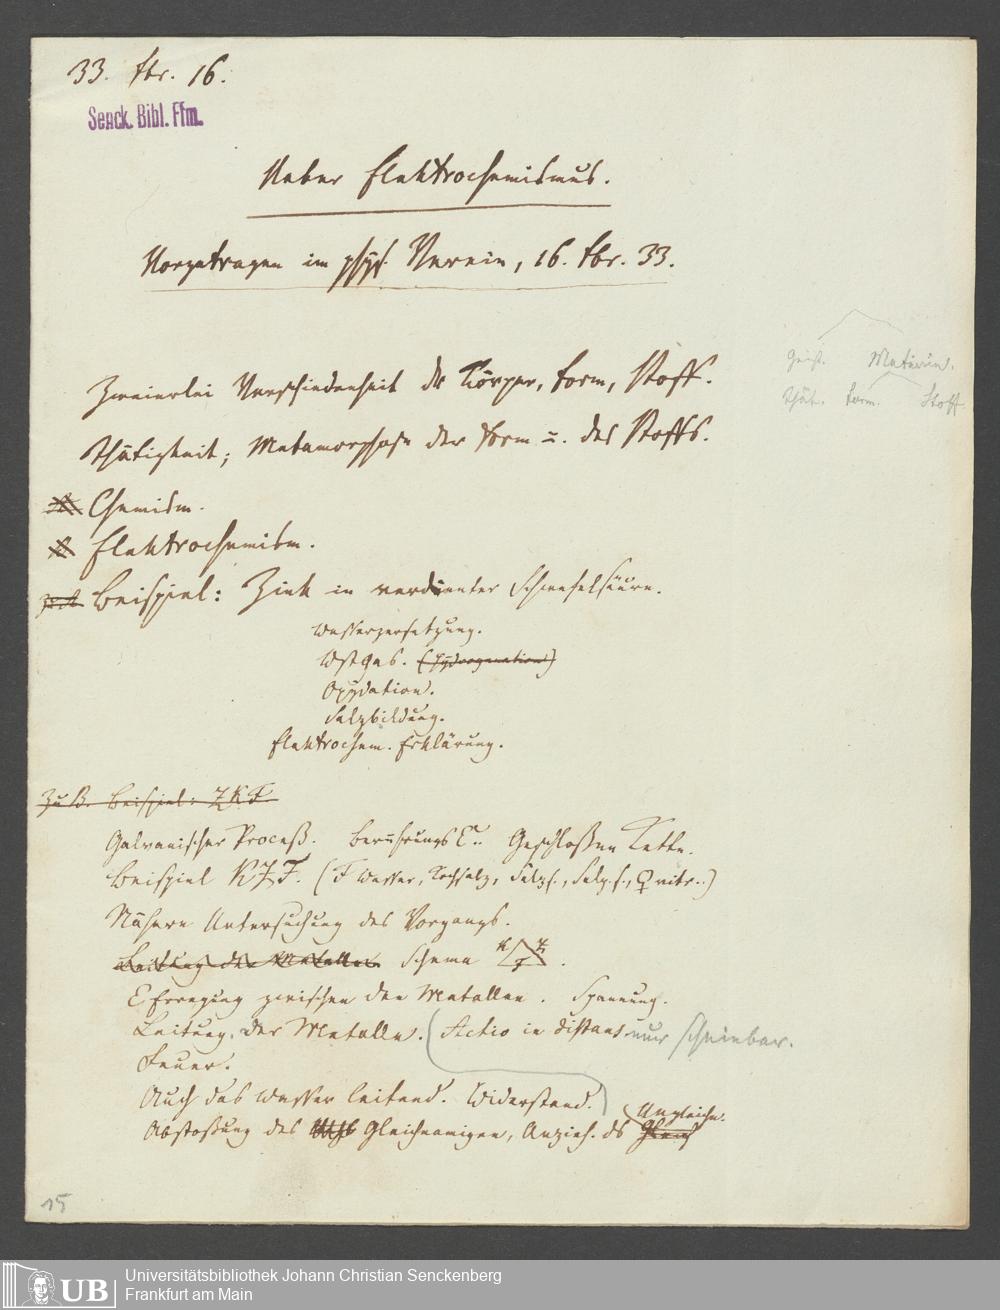 33. Fbr. 16.
Senck. Bibl. Ffm.
Ueber Elektrochemismus.
Vorgetragen im phys. Verein, 16. Fbr. 33.
Geist. Materie.
Thät. Form. Stoff
Zweierlei Verschiedenheit der Körper, Form, Stoff.
Thätigkeit; Metamorphose der Form u. des Stoffs.
Chemism.
Elektrochemism.
Beispiel: Zink in verdünnter Schwefelsäure.
Wasserzersetzung.
WstGas. (Hydrogenation)
Oxydation.
Salzbildung.
Elektrochem. Erklärung.
Beispiel: Z K F.
Galvanischer Proceß. Berührungs E. Geschloßene Kette.
Beispiel K Z F. (F Wasser, Kochsalz, Salzs., Salp.s., ☿ nitr..)
Nähere Untersuchung des Vorgangs.
Leitung der Metalle. Schema K Z F.
E Erregung zwischen den Metallen. Spannung.
Leitung der Metalle. (Actio in distans nur scheinbar.
Feuer.
Auch das Wasser leitend. Widerstand.)
Abstoßung des Gleichnamigen, Anzieh. ds Ungleichn.
15
UB
Universitätsbibliothek Johann Christian Senckenberg
Frankfurt am Main